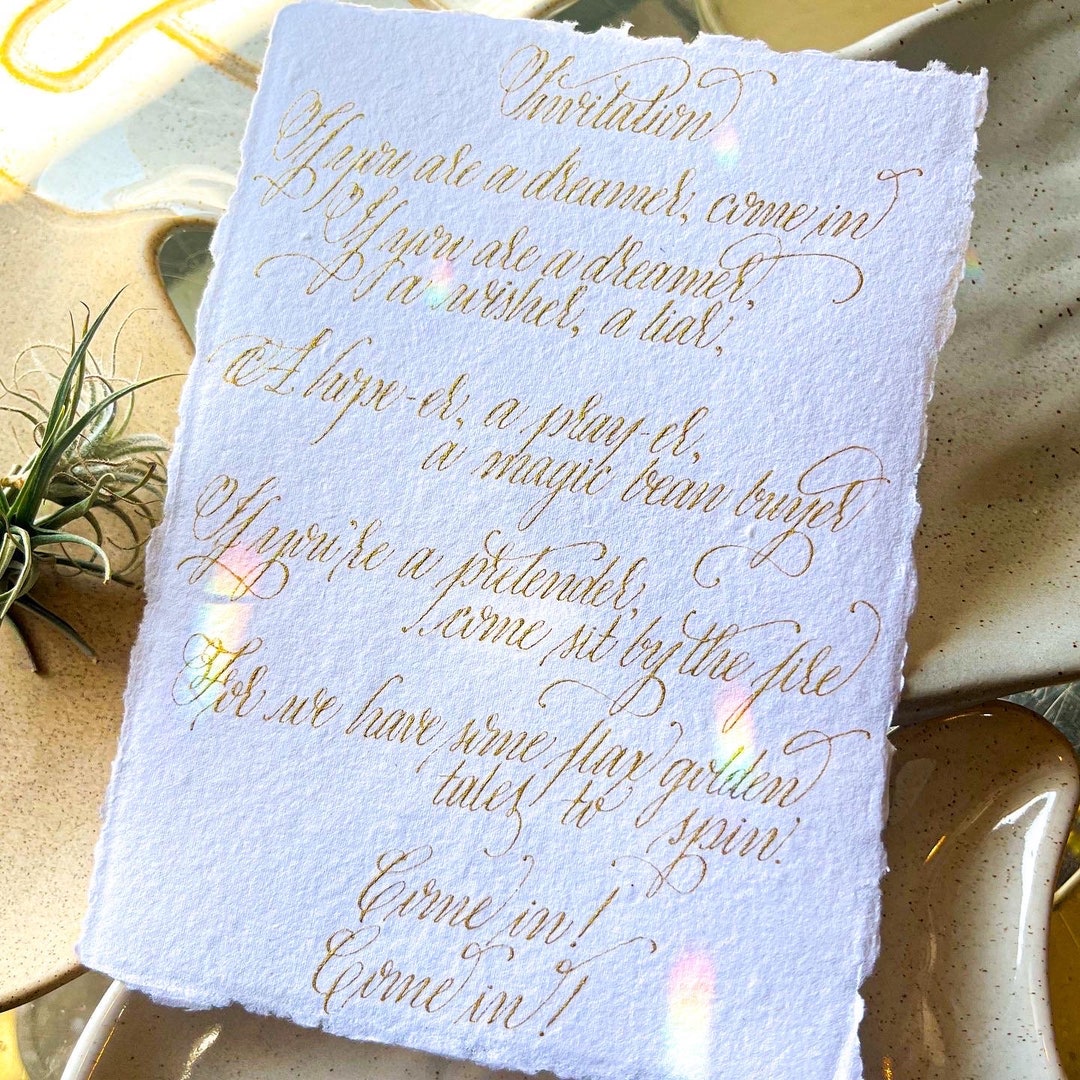 Invitation
If you are a dreamer, come in
If you are a dreamer,
a wisher, a liar,
A hope-er, a pray-er,
a magic bean buyer
If you're a pretender,
come sit by the fire
For we have some flax golden
tales to spin.
Come in!
Come in!